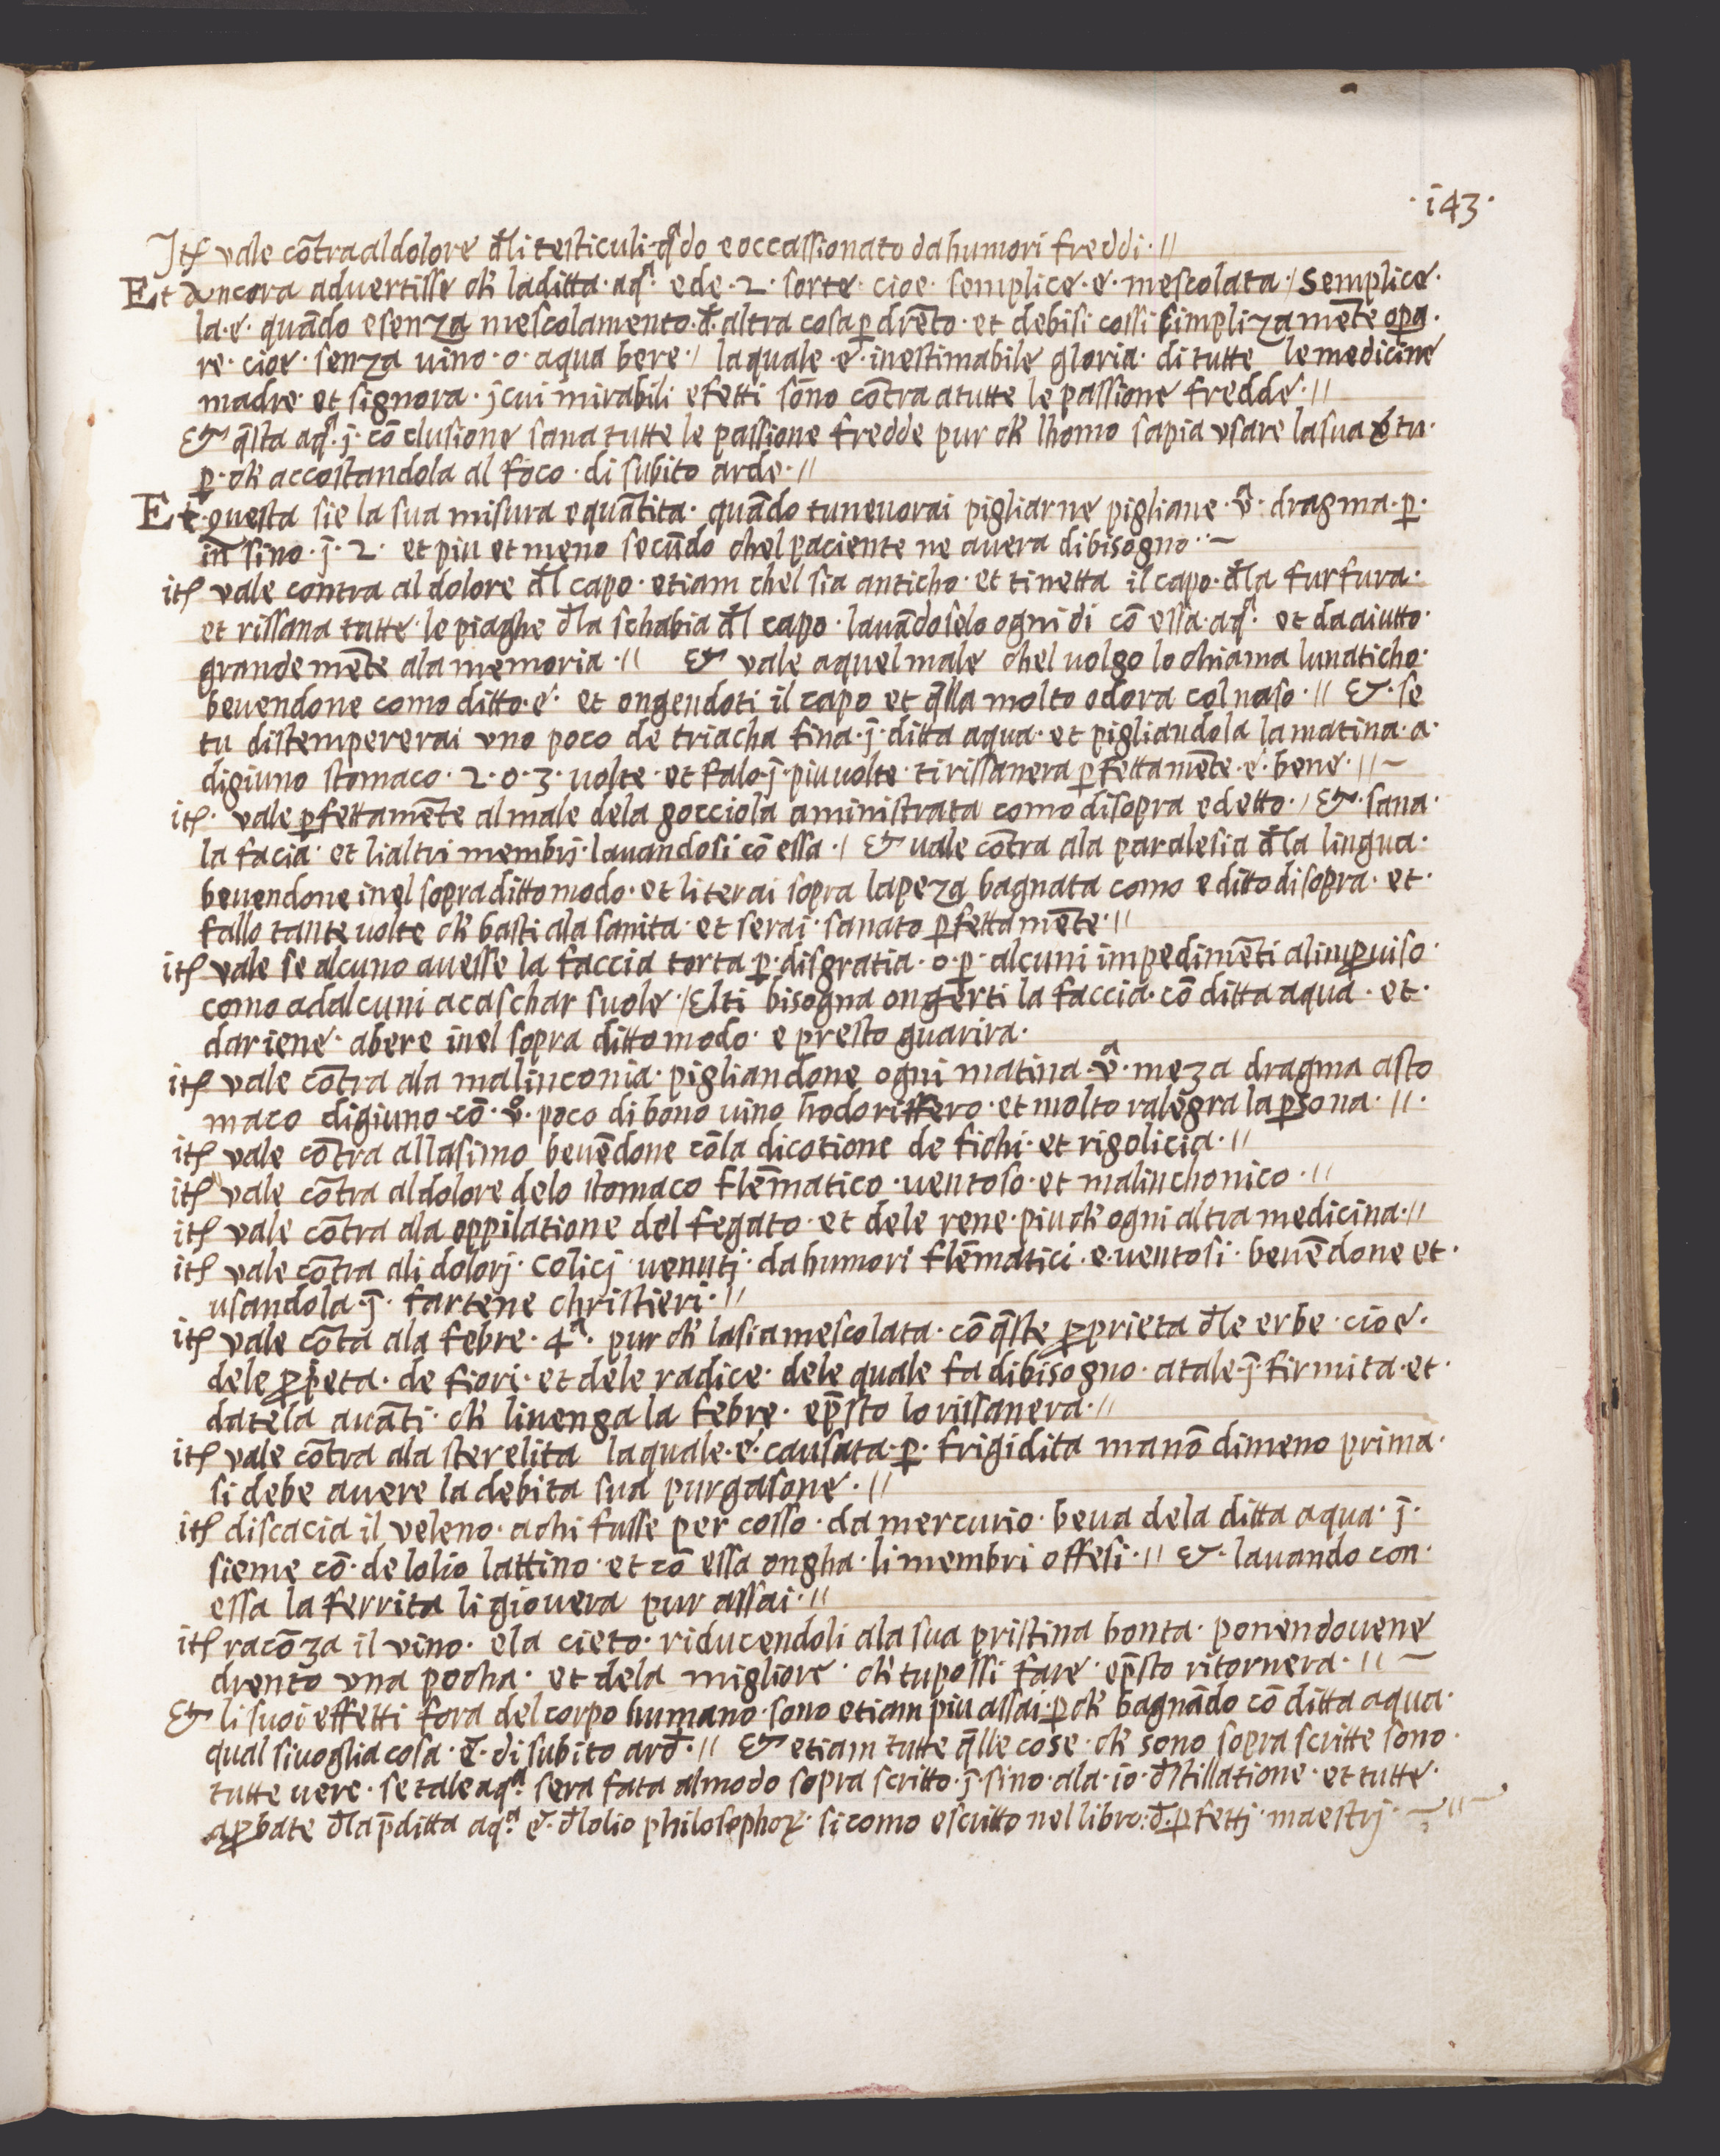 ·i43·
Itē vale cōtra al dolore đli testiculi qᵃdo e occassionato da humori freddi·//
Et ancora advertisse ch' la ditta·aqᵃ· e de·2·sorte· cioe· semplice·e·mescolata·/ Semplice·
la·e· quādo e senza mescolamento·đ·altra cosa ꝑ drēto· et debisi cossi simplizamēte opa·
re· cioe· senza uino·o·aqua bere·/ la quale·e·inestimabile gloria· di tutte le medicine
madre· et signora· j cui mirabili efetti sōno cōtra a tutte le passione fredde·//
& q̄sta aqᵃ·j̄·cōclusione sana tutte le passione fredde pur ch' lhomo sapia vsare la sua v̄tu·
ꝑ·ch' accostandola al foco·di subito arde·//
Et·questa sie la sua misura e quātita· quādo tu ne uorai pigliarne pigliane·v̄ᵃ·dragma·ꝑ·
in sino·j̄·2· et piu et meno secūdo chel paciente ne avera di bisogno··~
itē vale contra al dolore đl capo·etiam chel sia anticho·et ti netta il capo·đla furfura·
et rissana tutte·le piaghe đla schabia đl capo·lauādoselo ogni di cō essa·aqᵃ· et da aiutto·
grandemēte ala memoria·// & vale a quel male chel uolgo lo chiama lunaticho·
beuendone como ditto·e· et ongendoti il capo et q̄lla molto odora col naso·// &·se
tu distempererai vno poco de triacha fina·j̄·ditta aqua·et pigliandola la matina·a·
digiuno stomaco·2·o·3·uolte·et falo·j̄·piu uolte·ti rissanera ꝑfettamēte·e·bene·//~
itē· vale ꝑfettamēte al male dela gocciola aministrata como disopra e detto·/ &·sana·
la facia·et li altri membrj·lauandosi cō essa·/ & uale cōtra ala paralesia đla lingua·
beuendone inel sopra ditto modo·et li terai sopra la peza bagnata como e ditto di sopra·et·
fallo tante uolte ch' basti ala sanita·et serai·sanato ꝑfettamēte·//
itē vale se alcuno auesse la faccia torta ꝑ·disgratia·o·ꝑ·alcuni impedimēti al imꝓuiso·
como ad alcuni acaschar suole·/ Elti bisogna ongerti la faccia·cō ditta aqua·et·
dariene·a bere inel sopra ditto modo·e presto guarira·
itē vale cōtra ala malinconia·pigliandone ogni matina·v̄ᵃ·meza dragma a sto
maco digiuno cō·v̊·poco di bono uino hodoriffero·et molto ralegra la ꝑsona·//·
itē vale cōtra allasimo beuēdone cōla dicotione de fichi·et rigolicia·//
itē vale cōtra al dolore delo stomaco flēmatico·uentoso·et malinchonico·//
itē vale cōtra ala oppilatione del fegato·et dele rene·piu ch' ogni altra medicina·//
itē vale cōtra ali dolorj·colicj·uenutj·da humori flēmatici·e·uentosi·beuēdone et·
usandola·j̄·fartene christieri·//
itē vale cōta ala febre·4ᵃ· pur ch' la sia mescolata·cō q̄ste ꝓprieta đle erbe·cioe·
dele ꝓpeta·de fiori·et dele radice·dele quale fa di bisogno·a tale·j̄·firmita·et·
datela auāti·ch' li uenga la febre·e p̄sto lo rissanera·//
itē vale cōtra ala sterelita la quale·e·causata·ꝑ·frigidita ma nō dimeno prima·
si debe avere la debita sua purgasone·//
itē discacia il veleno·a chi fusse per cosso·da mercurio·beua dela ditta aqua·j̄·
sieme cō·delolio lattino·et cō essa ongha·li membri offesi·// &·lauando con·
essa la ferrita li giouera pur assai·//
itē racōza il vino·e la cieto·riducendoli ala sua pristina bonta·ponendouene
drento vna pocha·et dela migliore·ch' tu possi fare·e p̄sto ritornera·// ~
& li suoi effetti fora del corpo humano·sono etiam piu assai·ꝑ ch' bagnādo cō ditta aqua·
qual si uoglia cosa·e·di subito arđ·// & etiam tutte q̄lle cose·ch' sono sopra scritte sono·
tutte uere·se tale aqᵃ·sera fata al modo sopra scritto·j̄·sino·ala·io·đstillatione·et tutte·
aꝓbate đla p̄ditta aqᵃ·e·đlolio philosophoꝝ·si como e scritto nel libro:đ·ꝑfettj maestrj·~//~